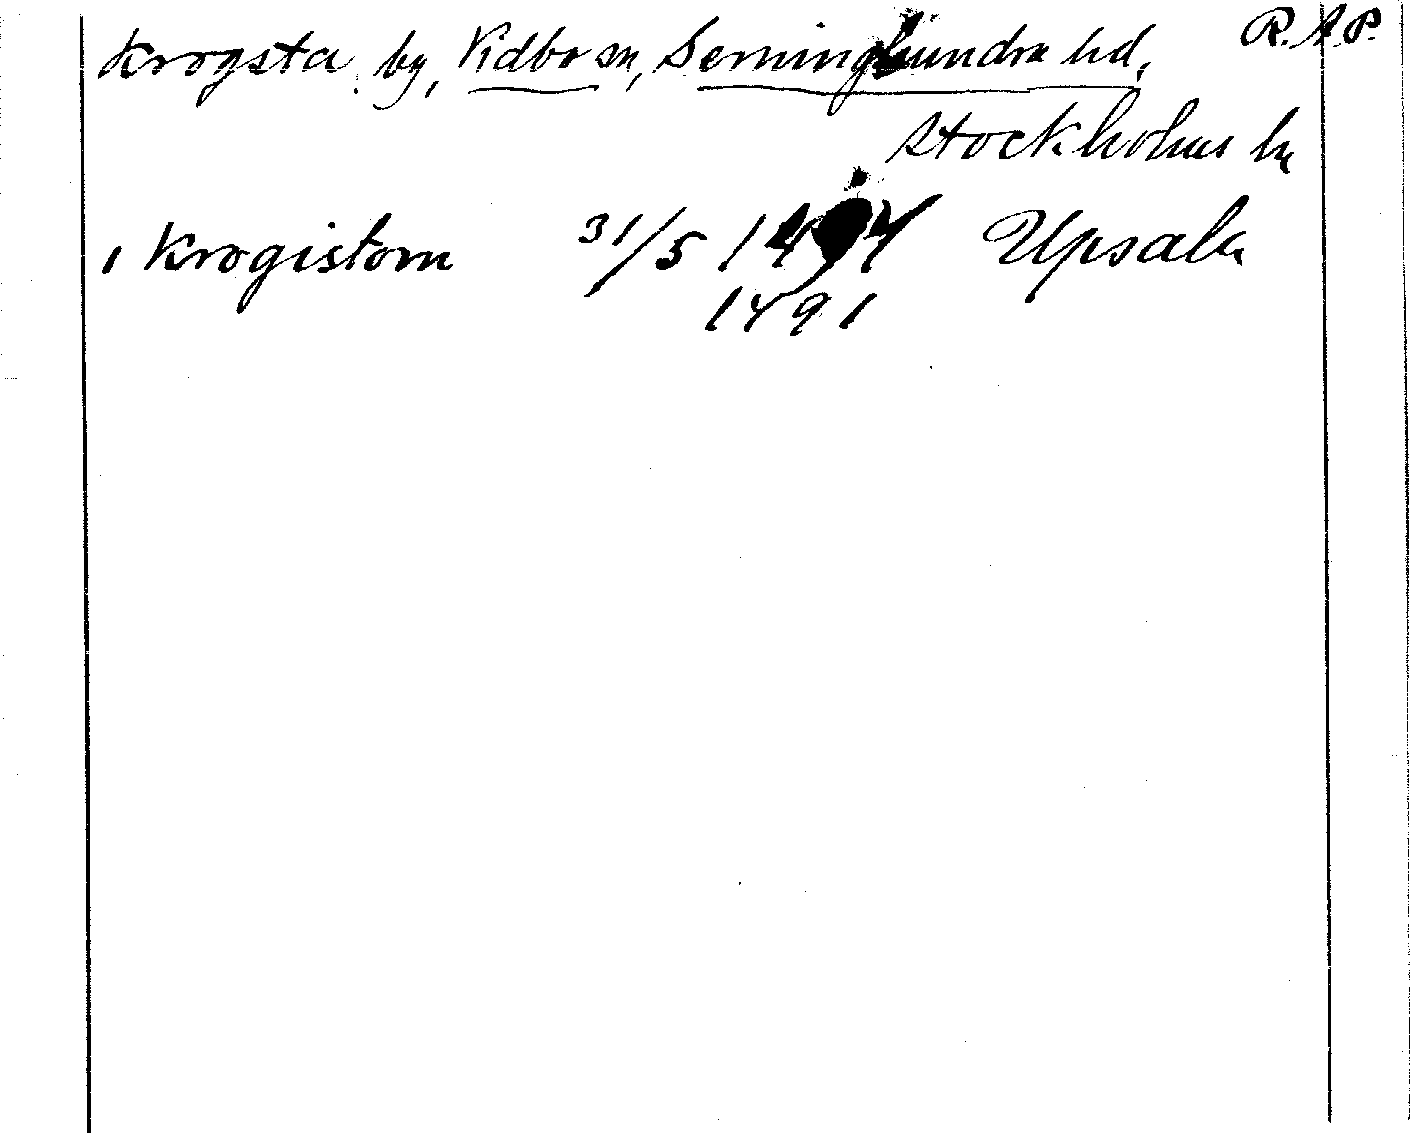 Krogsta by, Vidbo sn, Seminghundra hd, R.A.P.
Stockholms ln
i Krogistom 31/5 Upsala
1491